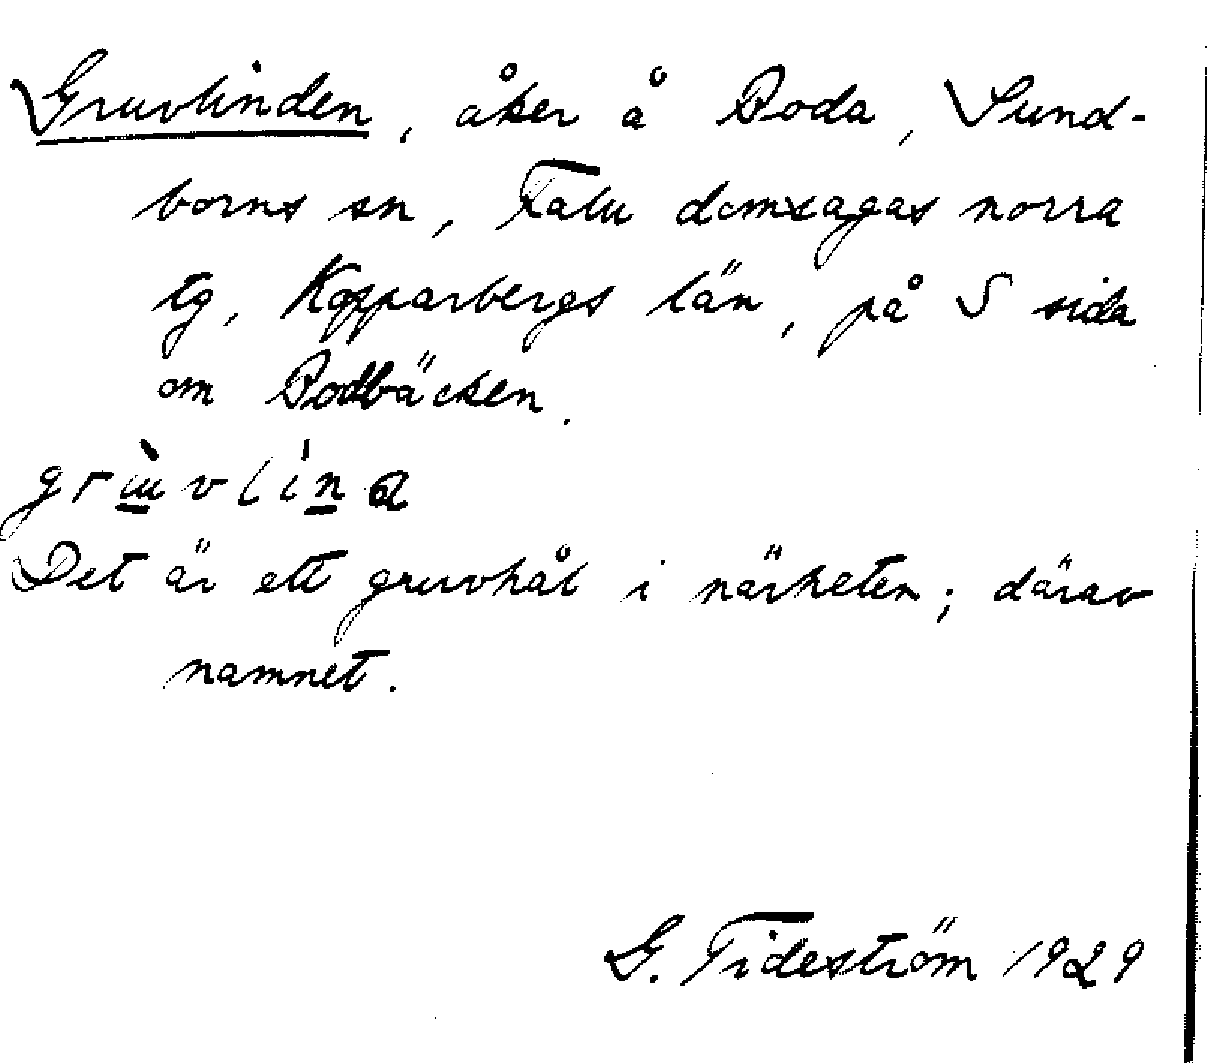 Gruvlinden, åker å Roda, Sund-
borns sn, Falu domsagas norra
tg, Kopparbergs län, på S sida
om Rodbäcken.
Det är ett gruvhål i närheten; därav
namnet.
G. Tideström 1929